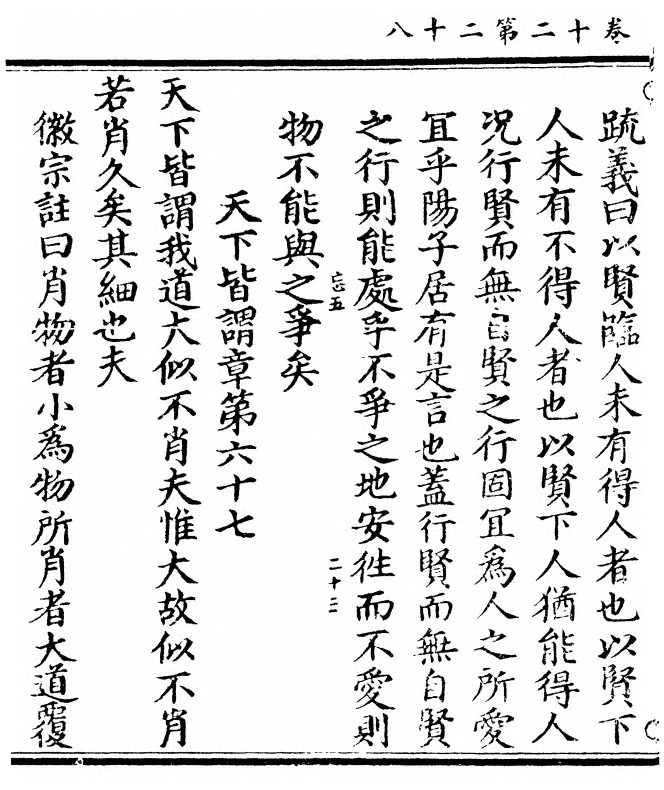 卷十二第二十八
疏義曰以賢臨人未有得人者也以賢下
人未有不得人者也以賢下人猶能得人
况行賢而無自賢之行固冝爲人之所愛
冝乎陽子居有是言也蓋行賢而無自賢
之行則能處乎不爭之地安徃而不愛則
忘五
二十二
物不能與之爭矣
天下皆謂章第六十七
天下皆謂我道大似不肖夫惟大故似不肖
若肖久矣其細也夫
徽宗註曰肖物者小爲物所肖者大道覆